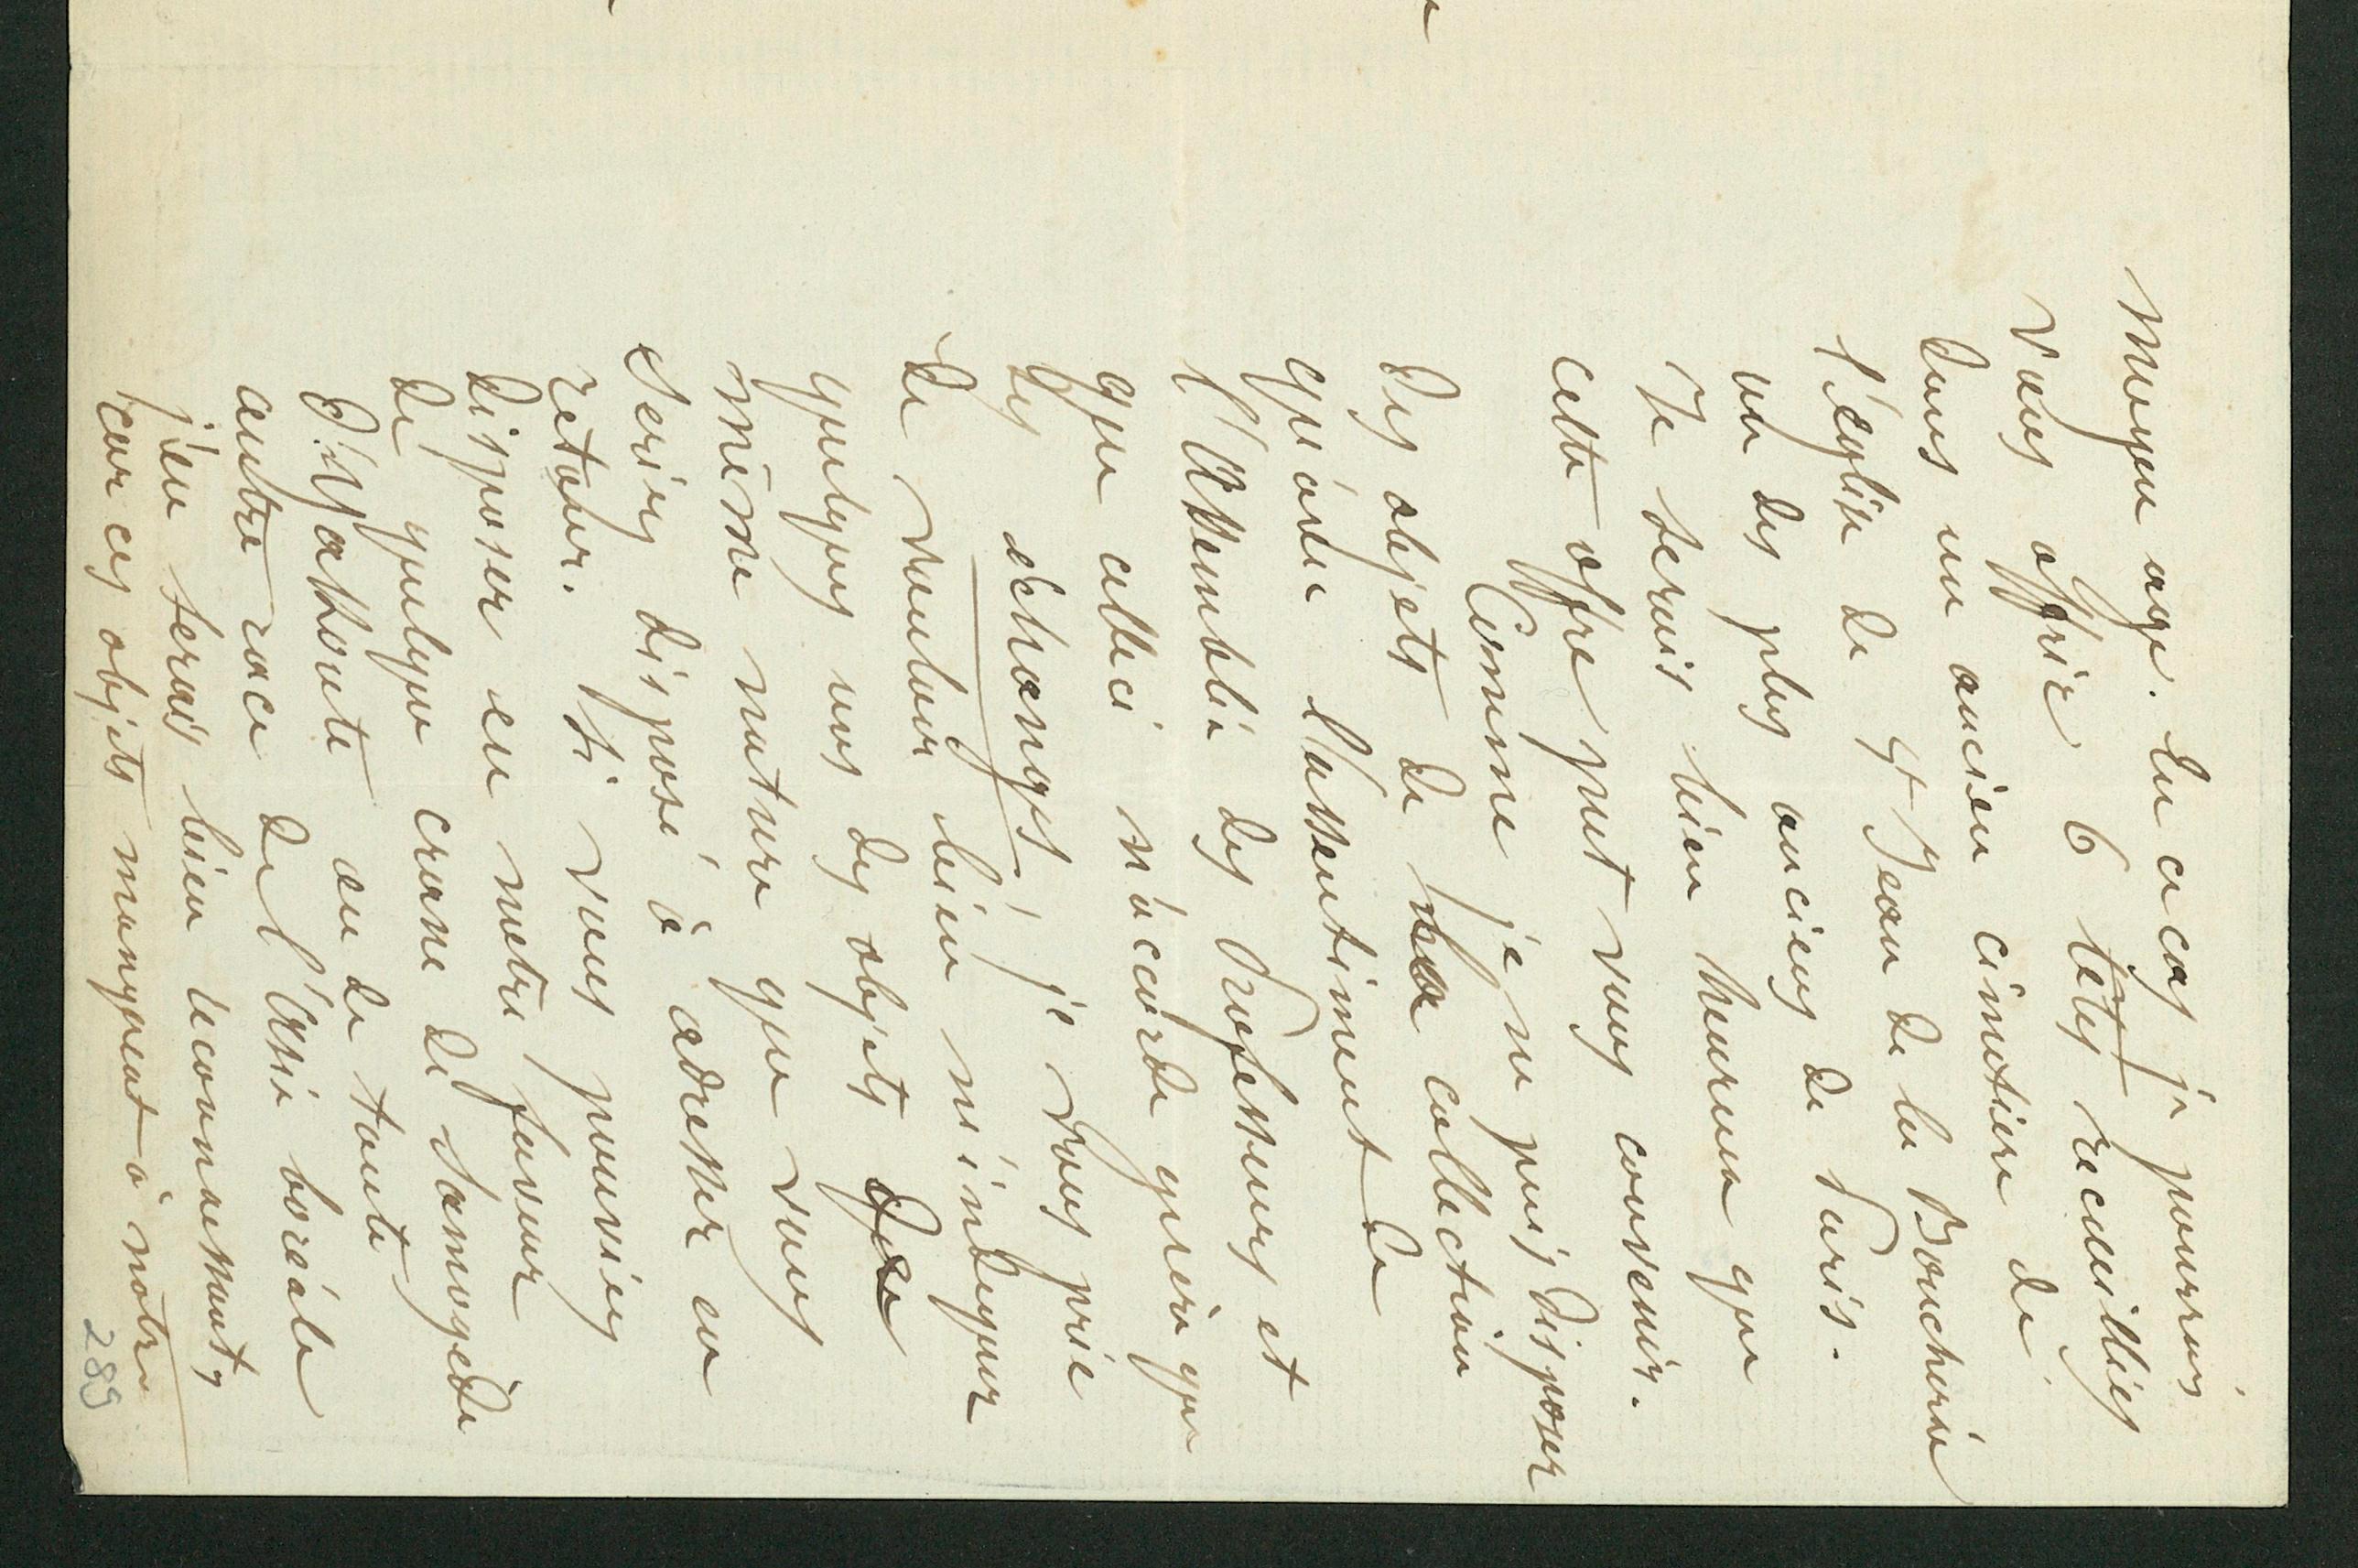 moyen age. En ce cas je pourrais
vous offrir 6 têtes recueillies
dans un ancien cimetiere de
l'eglise de St Jean de la Boucherie
un des plus anciens de Paris.
Je serais bien heureux que
cette offre put vous convenir.
Comme je ne puis disposer
des objets de la collection
qu'avec l'assentiment de
l'Assemblée des Professeurs et
que celleci n'accorde guère que
des échanges, je vous prie
de vouloir bien m'indiquer
quelques uns des objets de
même nature que vous
seriez disposé à adresser en
retour. Si vous pouviez
disposer en notre faveur
de quelque crane de Samoyede
d'Yakoute ou de toute
autre race de l'Asie boréale
j'en serais bien reconnaissant,
car ces objets manquent à notre
289